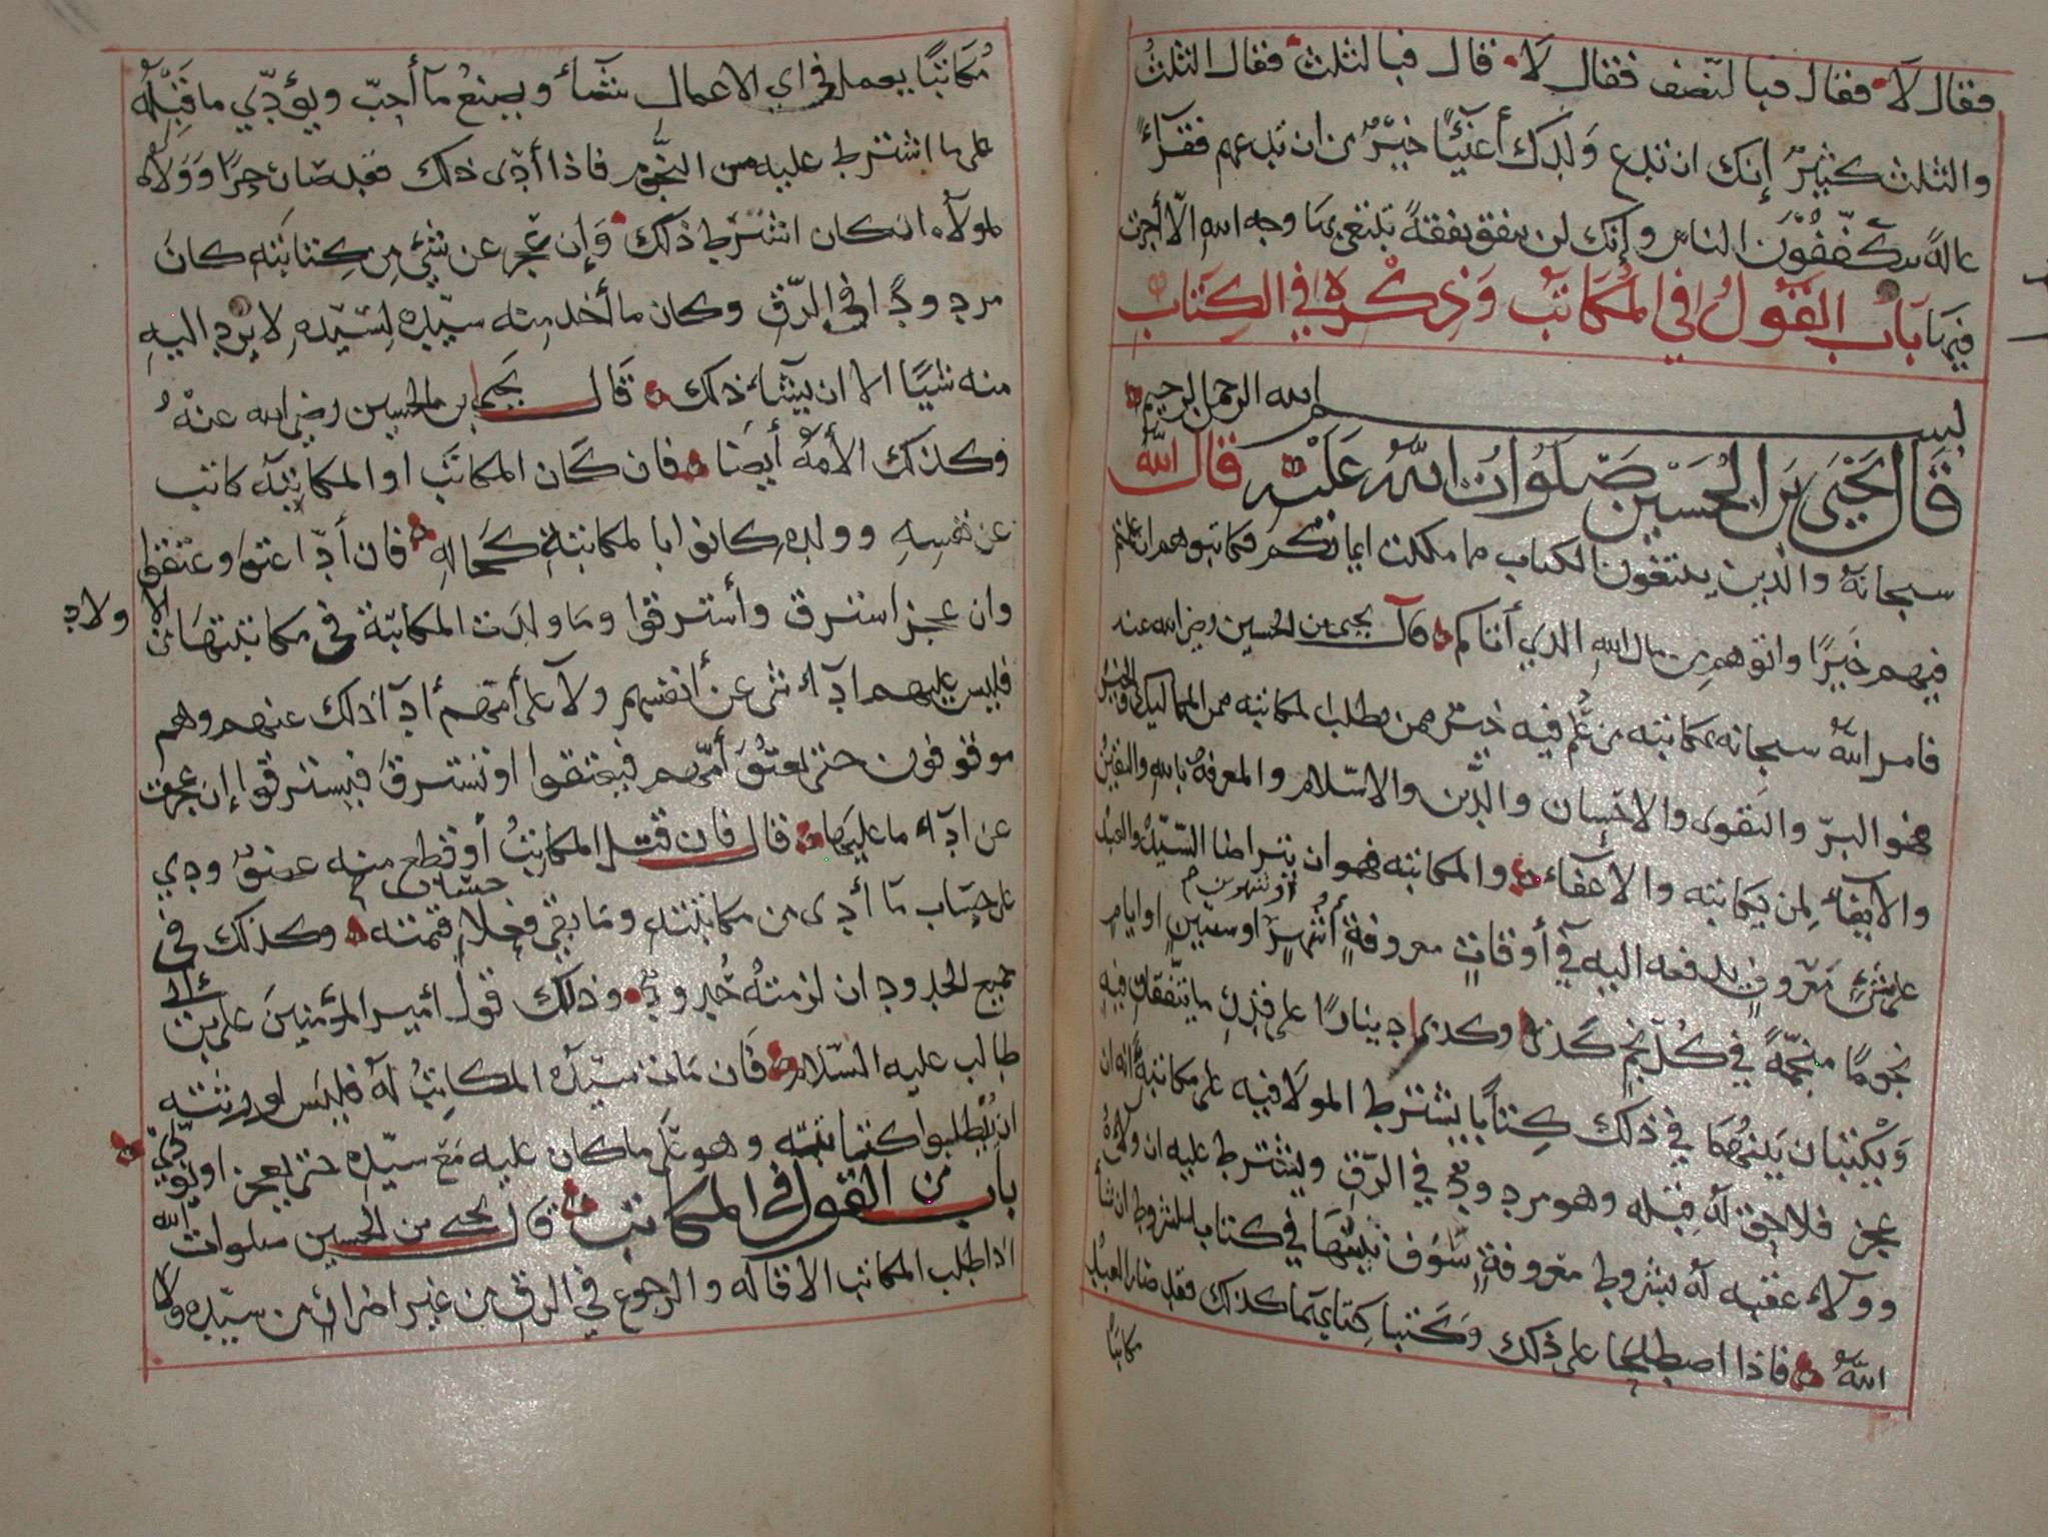 فقال لا فقال فبالنصف فقال لا قال فبالثلث فقال الثلث
والثلث كثير إنك ان تدع ولدك أغنيآ خير من ان تدعهم فقرآء
عالة يتكففون الناس وإنك لن تنفق نفقة تبتغي بها وجه الله الا أجرت
فيها باب القول في المكاتب وذكره في الكتاب
بسم الله الرحمن الرحيم
قال يحيى بن الحسين صلوات الله عليه قال الله
سبحانه والذين يبتغون الكتاب مما ملكت ايمانكم فكاتبوهم ان علمتم
فيهم خيرا واتوهم من مال الله الذي أتاكم قال يحيى بن الحسين رضي الله عنه
فامر الله سبحانه بمكاتبته من علم فيه خير ممن طلب المكاتبه من المماليك والخير
فهو البر والتقوى والاحسان والدين والاسلام والمعرفة بالله واليقين
والايفآء لمن يكاتبه والاعفآء والمكاتبه فهو ان يتراضا السيد والعبد
على شيء معروف يدفعه اليه في أوقات معروفة أشهر او سنين او ايام
او شهرين
نجوما منجمة في كل نجم كذى وكذى دينارا على قدر ما يتفقان فيه
ويكتبان بينهما في ذلك كتابا يشترط المولا فيه على مكاتبه انه ان
عجز فلا حق له قبله وهو مردود في الرق ويشترط عليه ان ولاءه
وولاء عقبه له بشروط معروفة سوف نبينها في كتاب الشروط ان شآ
الله فاذا اصطلحا على ذلك وكتبا كتابهما كذلك فقد صار العبد
مكاتبا
مكاتبا يعمل في اي الاعمال شآء ويصنع مآ أحب ويؤدي ما قبله
على ما اشترط عليه من النجوم فاذا أدى ذلك فقد صار حرا وولاه
لمولاه ان كان اشترط ذلك وإن عجز عن شئ من كتابته كان
مردودا في الرق وكان ما أخذ منه سيده لسيده لا يرد اليه
منه شيئا الا ان يشآء ذلك قال يحيى بن الحسين رضي الله عنه
وكذلك الأمة أيضا فان كان المكاتب او المكاتبه كاتب
عن نفسه وولده كانوا بالمكاتبة كحاله فان أدا عتق وعتقوا
وان عجز استرق وأسترقوا وما ولدت المكاتبة في مكاتبتها من الاولاد
فليس عليهم ادآء شى عن أنفسهم ولا على أمهم أدآ ذلك عنهم وهم
موقوفون حتى تعتق أمهم فيعتقوا او تسترق فيسترقوا إن عجزت
عن ادآء ما عليها قال فان قتل المكاتب أو قطع منه عضو ودي
على حساب مآ أدى من مكاتبته وما بقي فعلا قيمته وكذلك في
حساب
جميع الحدود ان لزمته حد وذلك قول أمير المؤمنين علي بن
طالب عليه السلام فان مات سيده المكاتب له فليس لورثته
ان يبطلوا كتابته وهو على ما كان عليه مع سيده حتى يعجز او يؤدي
باب من القول في المكاتب قال يحيى بن الحسين صلوات الله
اذا طلب المكاتب الاقاله والرجوع في الرق من غير اضرار من سيده ولا